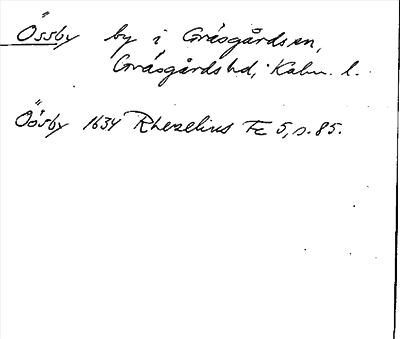 Össby by i Gräsgårds sn,
Gräsgårds hd, Kalm. l.
Öösby 1634 Rhezelius Fc 5, s. 85.